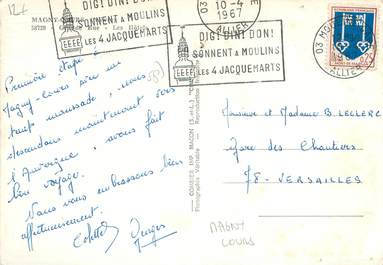 MAGNY-COURS
58728
Rue - Les Hôtels
DIGI DIN! DON!
SONNENT A MOULINS
LES 4 JACQUEMARTS
10-4
1967
ALLIER
DIGI DIN! DON!
SONNENT A MOULINS
LES 4 JACQUEMARTS
03 MO
ALLIER
0.25
Première étape à
Magny-Cours avec un
temps maussade, nous
descendons maintenant vers
l'Auvergne, avons fait
bon voyage.
Nous vous embrassons bien
affectueusement.
Colette Georges
COMBIER IMP. MACON
Photographie Véritable - Reproduction
Monsieur et Madame B. LECLERC
Gare des Chantiers
78 - VERSAILLES
MAGNY
COURS